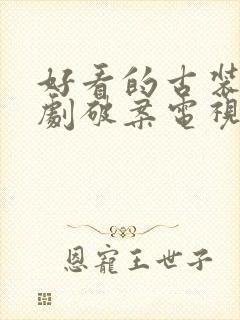 好看的古装
劇破案電視
恩寵王世子